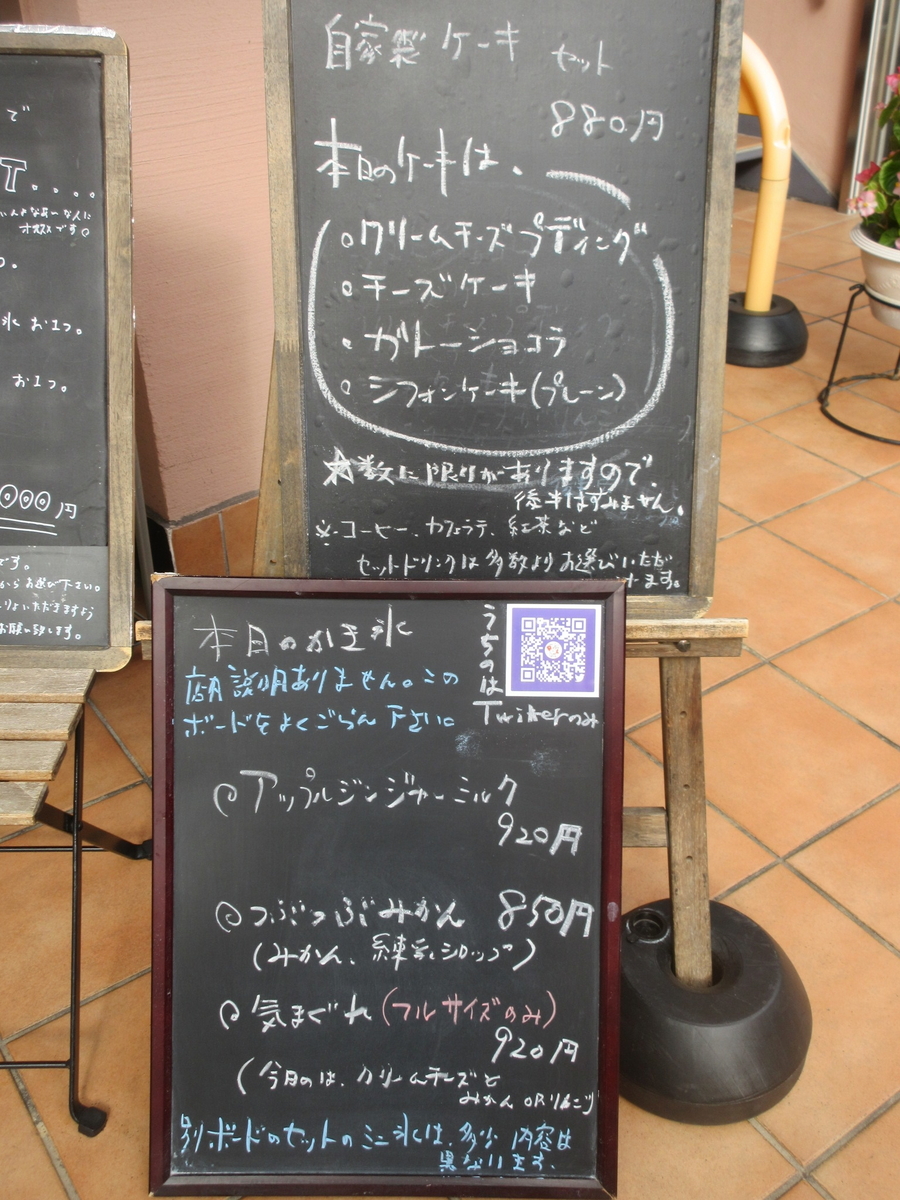 で
T....
オススメです。
氷 お1つ。
お1つ。
000円
です。
からお選び下さい。
お願い致します。
自家製 ケーキ セット
880円
本日のケーキは、
○クリームチーズプディング
○チーズケーキ
○ガトーショコラ
○シフォンケーキ(プレーン)
☆数に限りがありますので、
後半はすみません。
※コーヒー、カフェラテ、紅茶など
セットドリンクは多数よりお選びいただ
けます。
本日のかき氷
店内説明ありません。この
ボードをよくごらん下さい。
うちのは
Twitterのみ
◎アップルジンジャーミルク
920円
◎つぶつぶみかん 850円
(みかん、練乳シロップ)
◎気まぐれ(フルサイズのみ)
920円
(今日のは、クリームチーズと
みかん ORりんご)
別ボードのセットのミニ氷は、多少内容は
異なります。